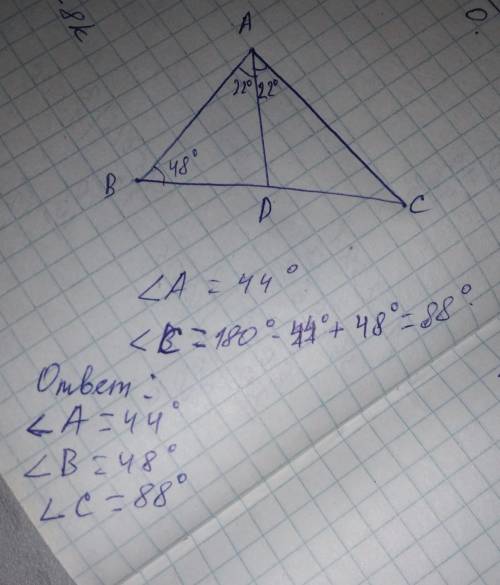 8k
0.
A
22° 22°
48°
B
D
C
∠A = 44°
∠C = 180° - 44° + 48° = 88°.
Ответ:
∠A = 44°
∠B = 48°
∠C = 88°